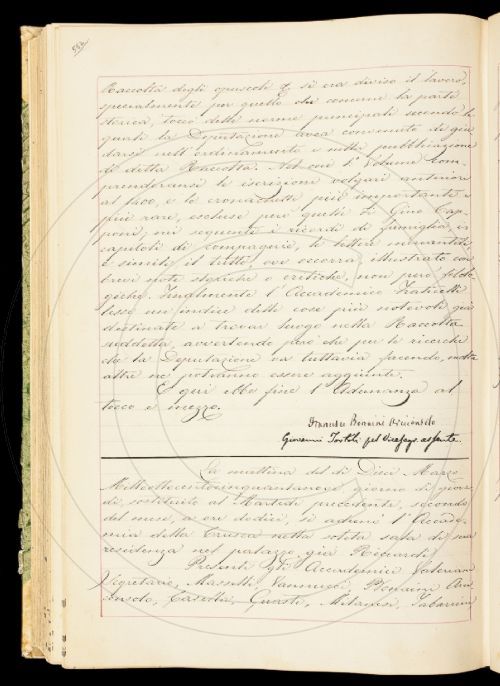 552
Raccolta degli opuscoli si era diviso il lavoro,
specialmente per quello che concerne la parte
storica, toccò delle norme principali secondo le
quali la Deputazione avea convenuto di gui-
darsi nell'ordinamento e nella pubblicazione
di detta Raccolta. Nel 1.° Volume com-
prenderansi le iscrizioni volgari anteriori
al 1400, e le cronachette più importanti e
più rare, escluse però quelle di Gino Cap-
poni; nei seguenti i ricordi di famiglia, i
capitoli di compagnie, le lettere mercantili,
e simili: il tutto, ove occorra, illustrato con
brevi note storiche o critiche, non però filolo-
giche. Finalmente l'Accademico Fraticelli
lesse un indice delle cose più notevoli già
destinate a trovar luogo nella Raccolta
suddetta, avvertendo però che per le ricerche
che la Deputazione va tuttavia facendo, molte
altre ne potranno essere aggiunte.
E qui ebbe fine l'Adunanza al
tocco e mezzo.
Francesco Bonaini Arciconsolo
Giovanni Tortoli
La mattina del dì Dieci Marzo
Milleottocentocinquantanove, giorno di giove-
dì, sostituito al Martedì precedente, secondo
del mese, a ore dodici, si adunò l'Accade-
mia della Crusca nella solita sala di sua
residenza nel palazzo già Riccardi.
Presenti gli Accademici Valeriani
Segretario, Masselli Vannucci Bonaini Arci-
consolo, Casella, Guasti, Milanesi, Tabarrini